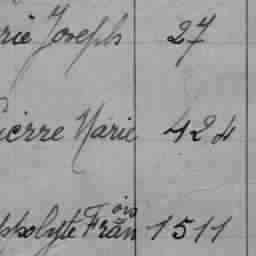 rie Joseph 27
ierre Marie 424
ppolyte Fran ois 1511